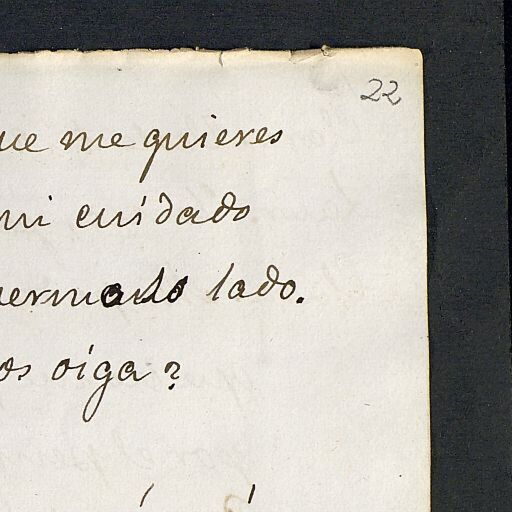 22
ue me quieres
mi cuidado
lado.
os oiga?